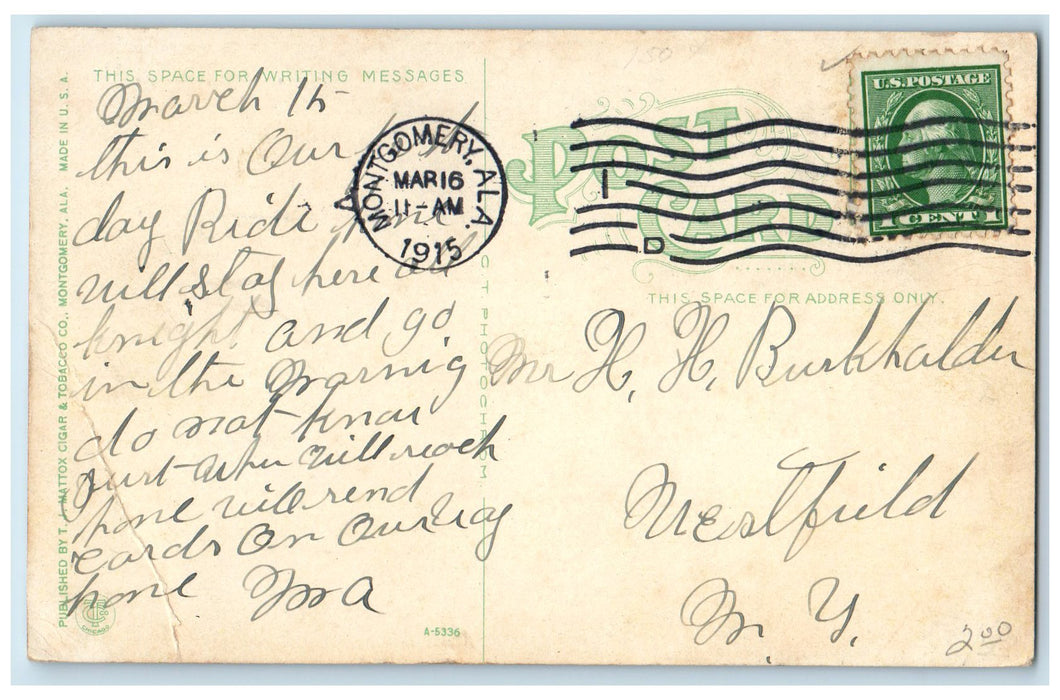 THIS SPACE FOR WRITING MESSAGES
March 15
this is Our
day Ride
will stay here all
knight and go
in the Marnig
do not know
Just when will reach
home will send
cards On Our way
home Ma
PUBLISHED BY T. J. MATTOX CIGAR & TOBACCO CO., MONTGOMERY, ALA. MADE IN U.S.A.
CHICAGO
A-5336
C. T. PHOTOCHROM
MONTGOMERY, ALA.
MAR 16
11-AM
1915
1
D
POST CARD
U.S. POSTAGE
1 CENT 1
THIS SPACE FOR ADDRESS ONLY.
Mr H. H. Burkhalder
Westfield
N. Y.
150
2 00